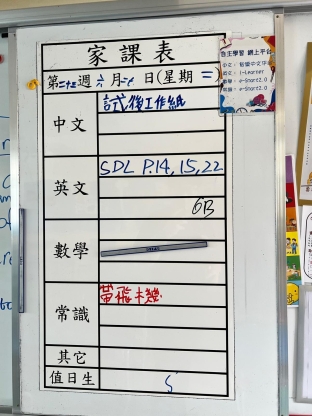 家課表
第二十三週 月 日(星期 二)
自主學習 網上平台
中文：智愛中文平台
英文：i-Learner
數學：e-Smart2.0
常識：e-Smart2.0
中文
試後工作紙
英文
SDL P.14, 15, 22
6B
數學
常識
帶飛機
其它
值日生
5